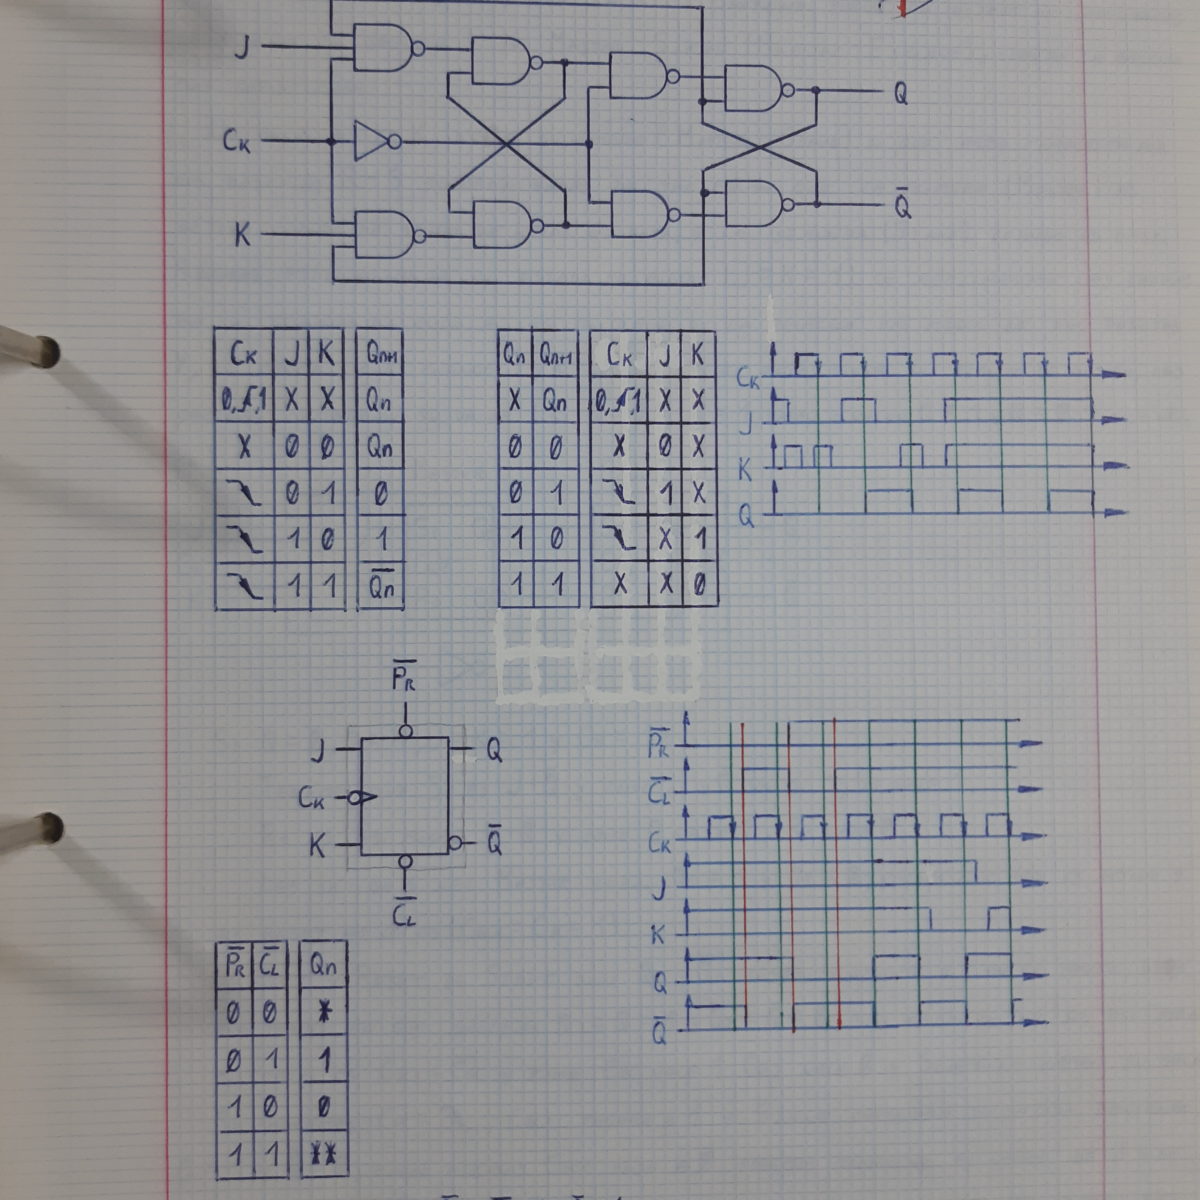 J
Q
CK
K
Q̅
CK J K Qn+1
0,↑,1 X X Qn
X 0 0 Qn
↘ 0 1 0
↘ 1 0 1
↘ 1 1 Q̅n
Qn Qn+1 CK J K
X Qn 0,↑,1 X X
0 0 X 0 X
0 1 ↘ 1 X
1 0 ↘ X 1
1 1 X X 0
CK
J
K
Q
P̅R
J Q
CK
K Q̅
C̅L
P̅R
C̅L
CK
J
K
Q
Q̅
P̅R C̅L Qn
0 0 *
0 1 1
1 0 0
1 1 **